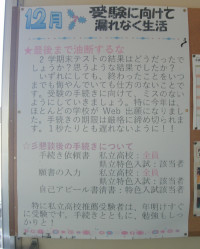 12月 受験に向けて
漏れなく生活
★最後まで油断するな
2学期末テストの結果はどうだったで
しょうか？思うような結果でしたか？
いずれにしても、終わったことをいつ
までも悔やんでいても仕方のないことで
す。受験の手続きに向けて、ミスのない
ようにしていきましょう。特に今年は、
ほとんどの学校がWeb出願になりまし
た。手続きの期限は厳格に締め切りま
す。1秒たりとも遅れないように！！
手続依頼書 私立高校：全員
県立特色入試：該当者
願書の入力 私立高校：全員
県立特色入試：該当者
自己アピール書清書：県立特色入試該当者
特に私立高校推薦受験者は、年明けすぐ
に受験です。手続きとともに、勉強もしっ
かりと！